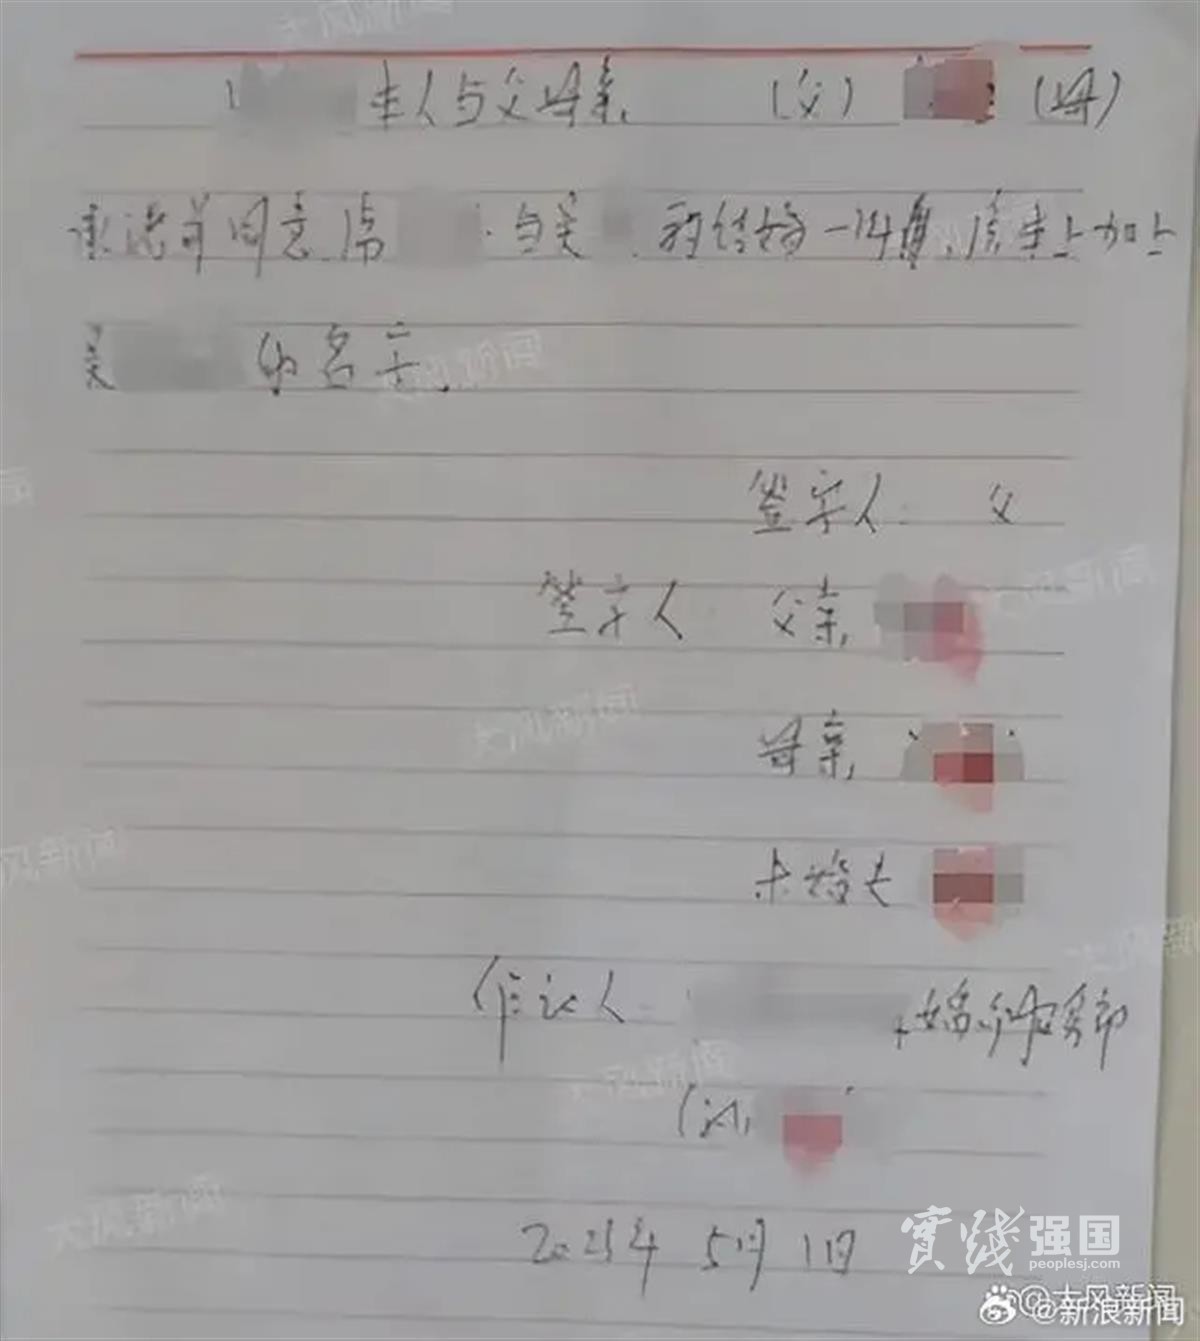 本人与父母亲 (父) (母)
承诺并同意席 与吴 的结婚一个月,房本上加上
吴 的名字,
签字人: 父
签字人 父亲,
母亲,
未婚夫
作证人: 婚介服务部
2025年 5月 1日
大风新闻
实践强国
peoplesj.com
@大风新闻
@新浪新闻